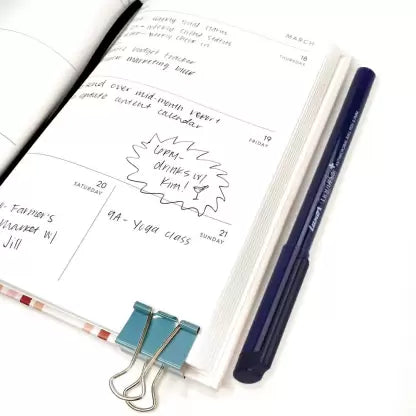 MARCH
18
THURSDAY
weekly client
check in
budget tracker
marketing
send over mid-month report
update content calendar
19
FRIDAY
6PM-
drinks w/
Kim!
20
SATURDAY
Farmer's
Market w/
Jill
21
SUNDAY
9A- Yoga class